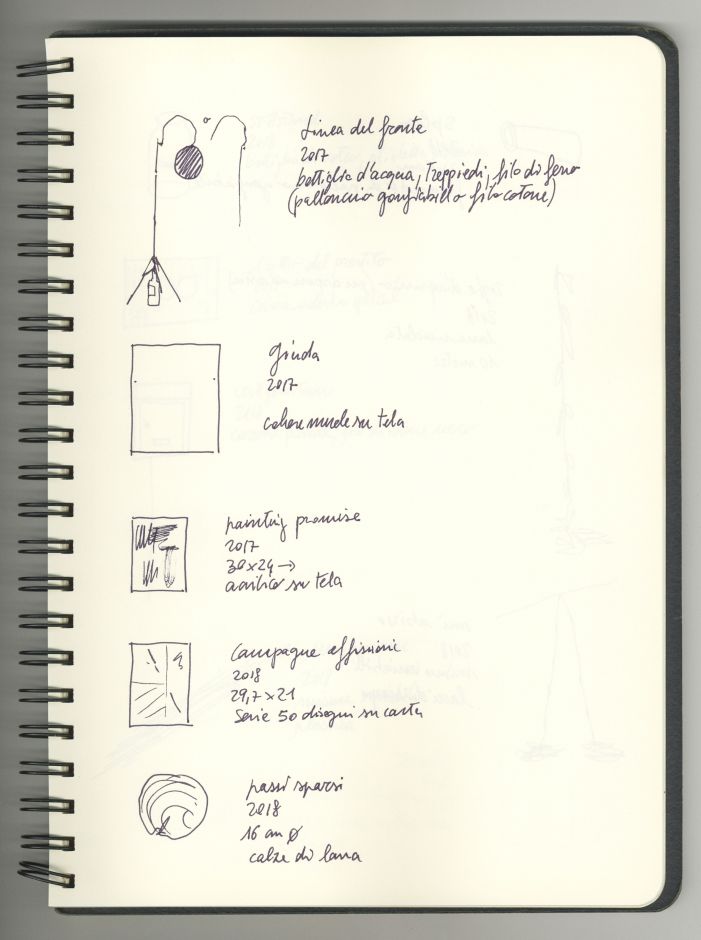 Linea del fronte
2017
bottiglia d'acqua, treppiedi, filo di ferro
(palloncino gonfiabile o filo cotone)
giuda
2017
colore murale su tela
painting promise
2017
30x24 →
acrilico su tela
Campagne affissioni
2018
29,7x21
Serie 50 disegni su carta
passi sparsi
2018
16 cm ø
calze di lana